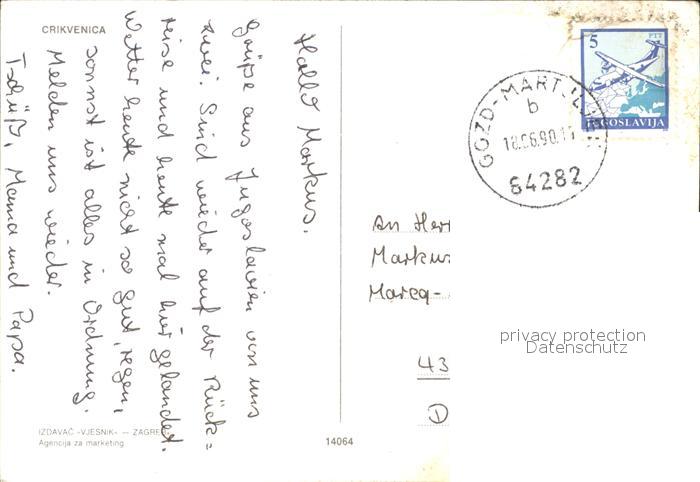 CRIKVENICA
Hallo Markus.
Grüße aus Jugoslavien von uns
zwei. Sind wieder auf der Rück=
reise und heute mal hier gelandet.
Wetter heute nicht so gut, regen,
sonnst ist alles in Ordnung.
Melden uns wieder.
Tschüß, Mama und Papa.
IZDAVAČ »VJESNIK« — ZAGREB
Agencija za marketing
14064
5
PTT
JUGOSLAVIJA
GOZD-MARTULJEK
b
18.06.90
64282
An Herr
Markus
Marcq-
43
D
privacy protection
Datenschutz